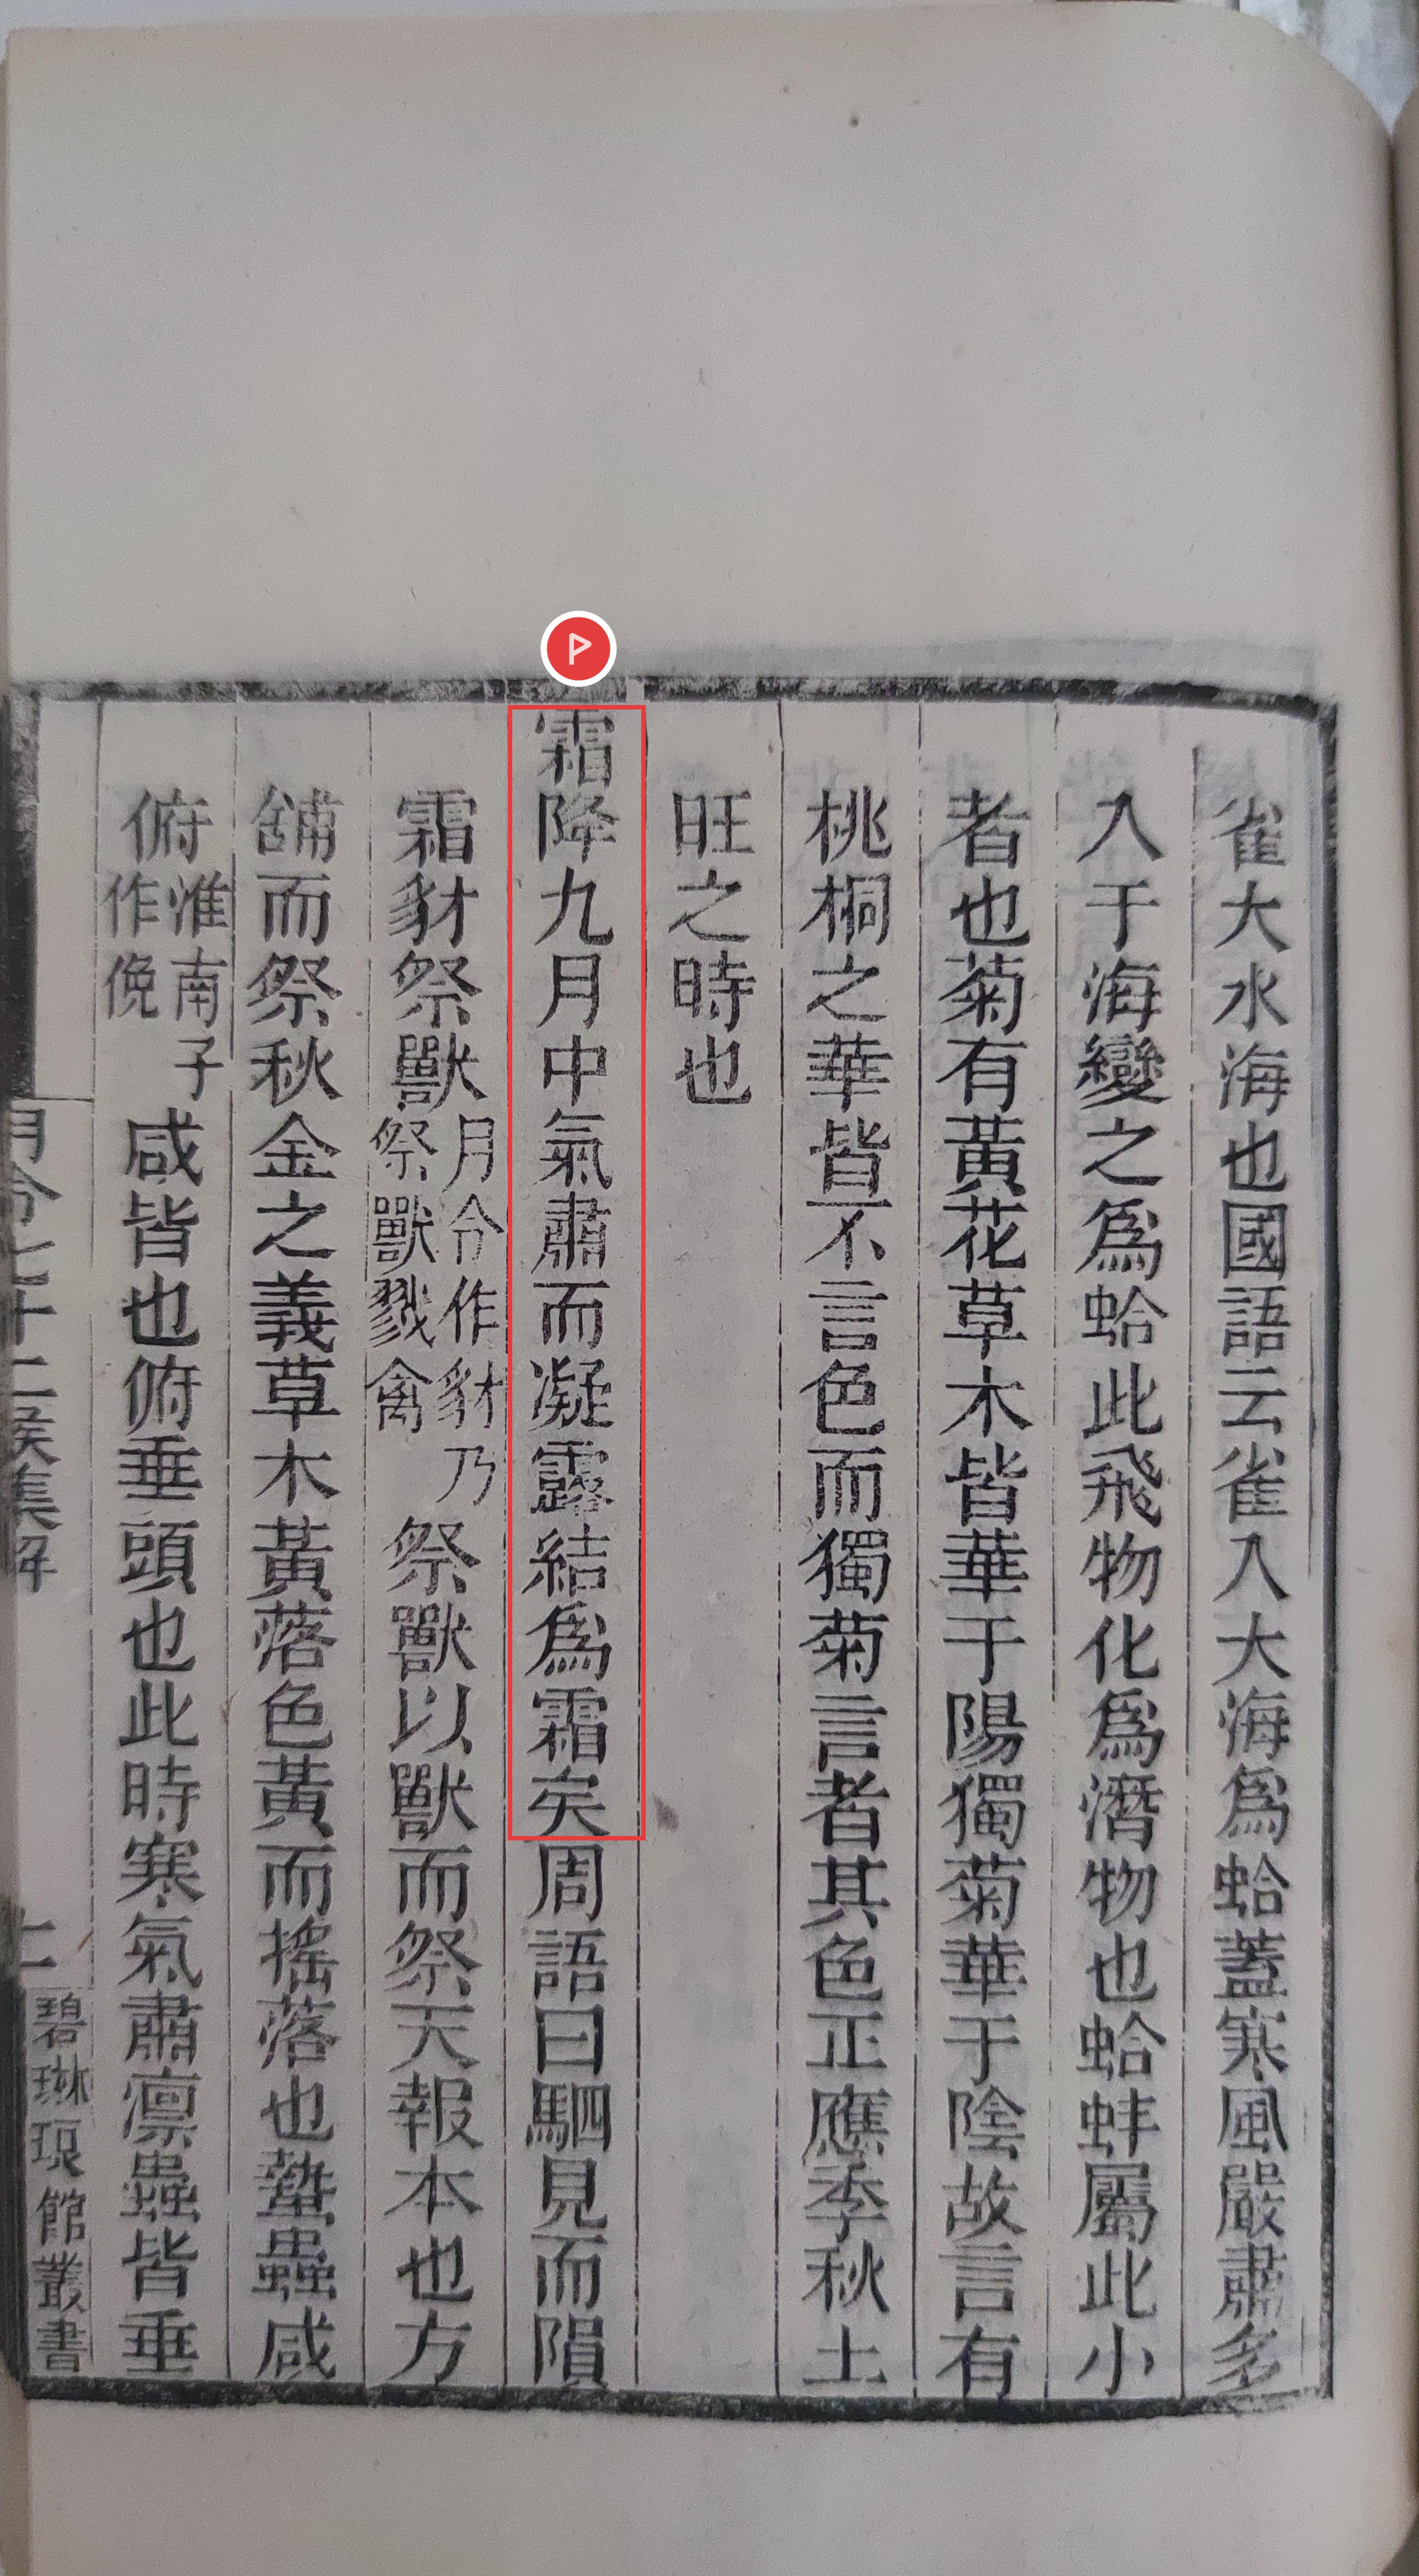 雀大水海也國語云雀入大海爲蛤蓋寒風嚴肅多
入于海變之爲蛤此飛物化爲潛物也蛤蚌屬此小
者也菊有黃花草木皆華于陽獨菊華于陰故言有
桃桐之華皆不言色而獨菊言者其色正應季秋土
旺之時也
霜降九月中氣肅而凝露結爲霜矣周語曰駟見而隕
霜豺祭獸月令作豺乃祭獸戮禽祭獸以獸而祭天報本也方
舖而祭秋金之義草木黃落色黃而搖落也蟄蟲咸
俯淮南子作俛咸皆也俯垂頭也此時寒氣肅凛蟲皆垂
月令七十二候集解
碧琳琅館叢書